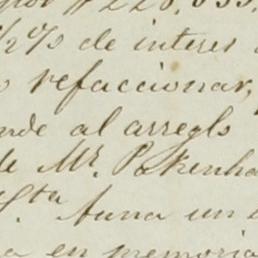 por $ 220,000.
1/2 % de interes
refaccionar,
al arreglo
de Mr. Pakenha
Sta. Anna un
en memoria